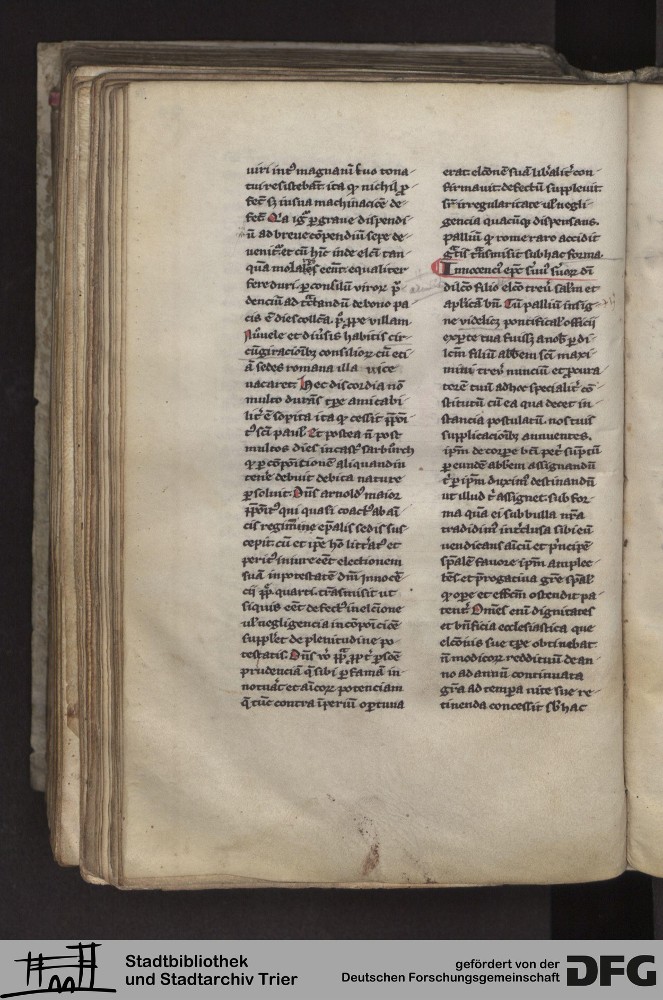 uiri int᷒ magnanı̄ t̄uo tona
tui resisteba̅t. ita q̨ nichil ꝓ
fec̄ sꝫ in sua machinac̄iōe de
fec̄. Q̇a igr̄ ꝑ graue dispendi
ū ad breue cōpendiū sepe de
uenit᷒. et cū hı̄t inde elc̄ı tan
ecūt equaliter
fere duri. ꝑ consiliū viroꝝ pͮ
denciū ad tc̄tandū de bono pa
cis ē dies collc̄a. ꝓpe villam
Nuuele et diuͥsis habitis cir
cūgiracioı̄bꝫ consilioꝝ cū eti
ā sedes romana illa vice
uacaret. Hec discordia nō
multo durās tꝑe amicabi
lit᷒ ē sopita ita q̨ cessit ꝓpoı̄
t᷒ sc̄ı paulı̄. Et postea n̄ post
multos dies in cast᷒ sarburch
q̨ ꝑ cōpoı̄tionē aliquandiu
tene᷒ debuit debita nature
ꝑsoluit. Dn̄s arnold᷒ maior
ꝓpoı̄t᷒ qui quasi coact᷒ ab aı̄
cis regimine ep̄alis sedis sus
cepit. cū et ip̄e hō litt᷒at᷒ et
perit᷒ in iure eēt electionem
suā in potestatē dn̄ı Innocē
cii pp̄ quarti. trāsmisit ut
si quis eēt defect᷒ in elc̄ione
ul᷒ negligencia in cōpoı̄ciōe
supplet de plenitudine po
testatis. Dn̄s v᷒o pp̄
prudenciā q̄ sibi ꝑ famā in
notuāt et aı̄coꝝ potenciam
q̄ tūc contra īperiū oportuna
erat. elc̄ōnē suā libᷣalit᷒ con
firmauit. defectū suppleuit.
sr̄ irregularitate ul᷒ negli
gencia quacūqꝫ dispensans.
palliū q̨ rome raro accidit
gr̄tis trāsmisit sub hac forma.
Innocenci᷒ ep̄c seruꝰ seruoꝝ dı̄
dilc̄o filio elc̄o treū. salt̄m et
aplı̄cā bn̄. Cū palliū insig
ne videlicꝫ pontifical᷒ officii
ex ꝑte tua fuissꝫ a nob᷒ ꝑ di
lc̄m filiū abbem sc̄ı maxi
mini treū. nunciū et ꝓcura
torē tuū ad hoc specialit᷒ cō
stitutū cū ea qua decet in
stancia postulatū. nos tuis
supplicacioı̄bꝫ annuentes.
ip̄m de corꝑe bt̄ı pet᷒ sūptū
ꝑ eundē abbem assignandū
t᷒ ꝑ ip̄m duxim᷒ destinandū
ut illud t᷒ assignet. sub for
ma quā ei sub bulla nr̄a
tradidim᷒ int᷒clusa sibi eū
uendicans aı̄cū et pͥncipē
spālē. fauore ip̄m amplec
tēs. et p̄rogatiua gr̄e spāl᷒
q̨ oꝑe et effc̄m ostendit pa
tent᷒. Om̄es enī dignitates
et bn̄ficia ecclesiastica que
elc̄ōnis sue tꝑe obtinebat.
n̄ modicoꝝ reddituū de an
no ad annū continuata
gr̄a ad tempora uite sue re
tinenda concessit sb᷒ hac
Stadtbibliothek
und Stadtarchiv Trier
gefördert von der
Deutschen Forschungsgemeinschaft
DFG